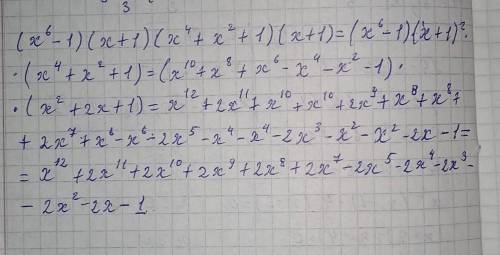 3
(x⁶-1)(x+1)(x⁴+x²+1)(x+1)=(x⁶-1)(x+1)².
·(x⁴+x²+1)=(x¹⁰+x⁸+x⁶-x⁴-x²-1)·
·(x²+2x+1)=x¹²+2x¹¹+x¹⁰+x¹⁰+2x⁹+x⁸+x⁸+
+2x⁷+x⁶-x⁶-2x⁵-x⁴-x⁴-2x³-x²-x²-2x-1=
=x¹²+2x¹¹+2x¹⁰+2x⁹+2x⁸+2x⁷-2x⁵-2x⁴-2x³-
-2x²-2x-1